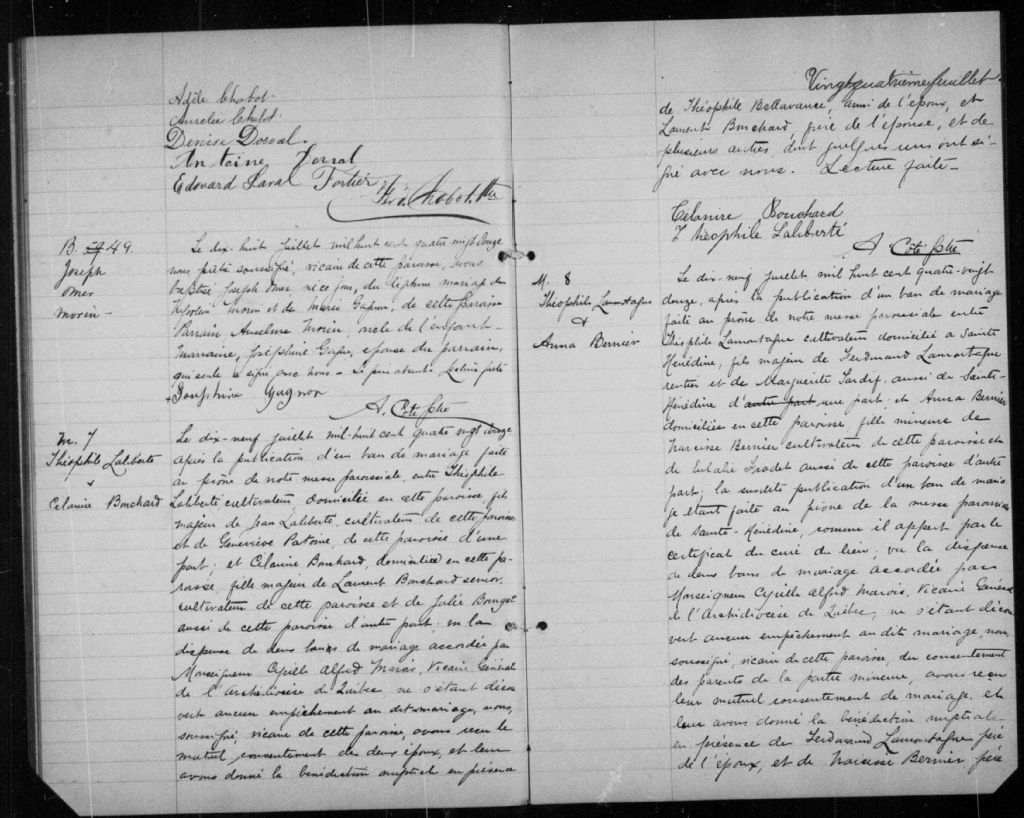 Adèle Chabot
Aurelie Chabot.
Denise Dorval.
Antoine Dorval
Edouard Laval Fortier
Chabot, Ptre
B. 49.
Joseph
Omer
Morin
Le dix-huit juillet mil huit cent quatre vingt douze
nous, prêtre soussigné, vicaire de cette paroisse, avons
baptisé Joseph Omer né ce jour, du légitime mariage de
Morin et de Marie Gagnon, de cette paroisse
Parrain, Anselme Morin, oncle de l'enfant
Marraine, Joséphine Gagnon, epouse du parrain,
qui seule a signé avec nous. Le père absent. Lecture faite
Josephine Gagnon
A. Côté Ptre
M. 7
Théophile Laliberté
&
Célanire Bouchard
Le dix-neuf juillet mil-huit cent quatre vingt douze
après la publication d'un ban de mariage faite
au prône de notre messe paroissiale, entre Théophile
Laliberté, cultivateur domicilié en cette paroisse, fils
majeur de Jean Laliberté, cultivateur de cette paroisse
et de Geneviève Patoine, de cette paroisse d'une
part; et Célanire Bouchard, domiciliée en cette pa-
roisse, fille majeure de Laurent Bouchard senior,
cultivateur de cette paroisse et de Julie
aussi de cette paroisse d'autre part; vu la
dispense de deux bans de mariage accordée par
Monseigneur Cyrille Alfred Marois, Vicaire Général
de l'archidiocèse de Québec, ne s'étant décou
vert aucun empêchement au dit mariage, nous,
soussigné, vicaire de cette paroisse, avons reçu le
mutuel consentement des deux époux, et leur
avons donné la bénédiction nuptiale en présence
Vingt quatrième feuillet
de Théophile Bellavance, ami de l'epoux, et
Laurent Bouchard, père de l'épouse, et de
plusieurs autres, dont quelques uns ont si-
gné avec nous. Lecture faite
Célanire Bouchard
Théophile Laliberté
A. Côté Ptre
M. 8
Théophile Lamontagne
&
Anna Bernier
Le dix-neuf juillet mil huit cent quatre-vingt
douze, après la publication d'un ban de mariage
faite au prône de notre messe paroissiale entre
Théophile Lamontagne cultivateur domicilié à Sainte
Hénédine, fils majeur de Ferdinand Lamontagne
rentier et de Marguerite Tardif, aussi de Sainte-
Hénédine d'autre part une part; et Anna Bernier
domiciliée en cette paroisse, fille mineure de
Narcisse Bernier cultivateur de cette paroisse et
de Eulalie Fradet aussi de cette paroisse d'autre
part; la susdite publication d'un ban de maria
ge étant faite au prône de la messe paroissiale
de Sainte-Hénédine, comme il appert par le
certificat du curé du lieu; vu la dispense
de deux bans de mariage accordée par
Monseigneur Cyrille Alfred Marois, Vicaire Général
de l'Archidiocèse de Québec, ne s'étant décou
vert aucun empêchement au dit mariage, nous,
soussigné, vicaire de cette paroisse, du consentement
des parents de la partie mineure, avons reçu
leur mutuel consentement de mariage et
leur avons donné la bénédiction nuptiale
en présence de Ferdinand Lamontagne père
de l'époux, et de Narcisse Bernier, père